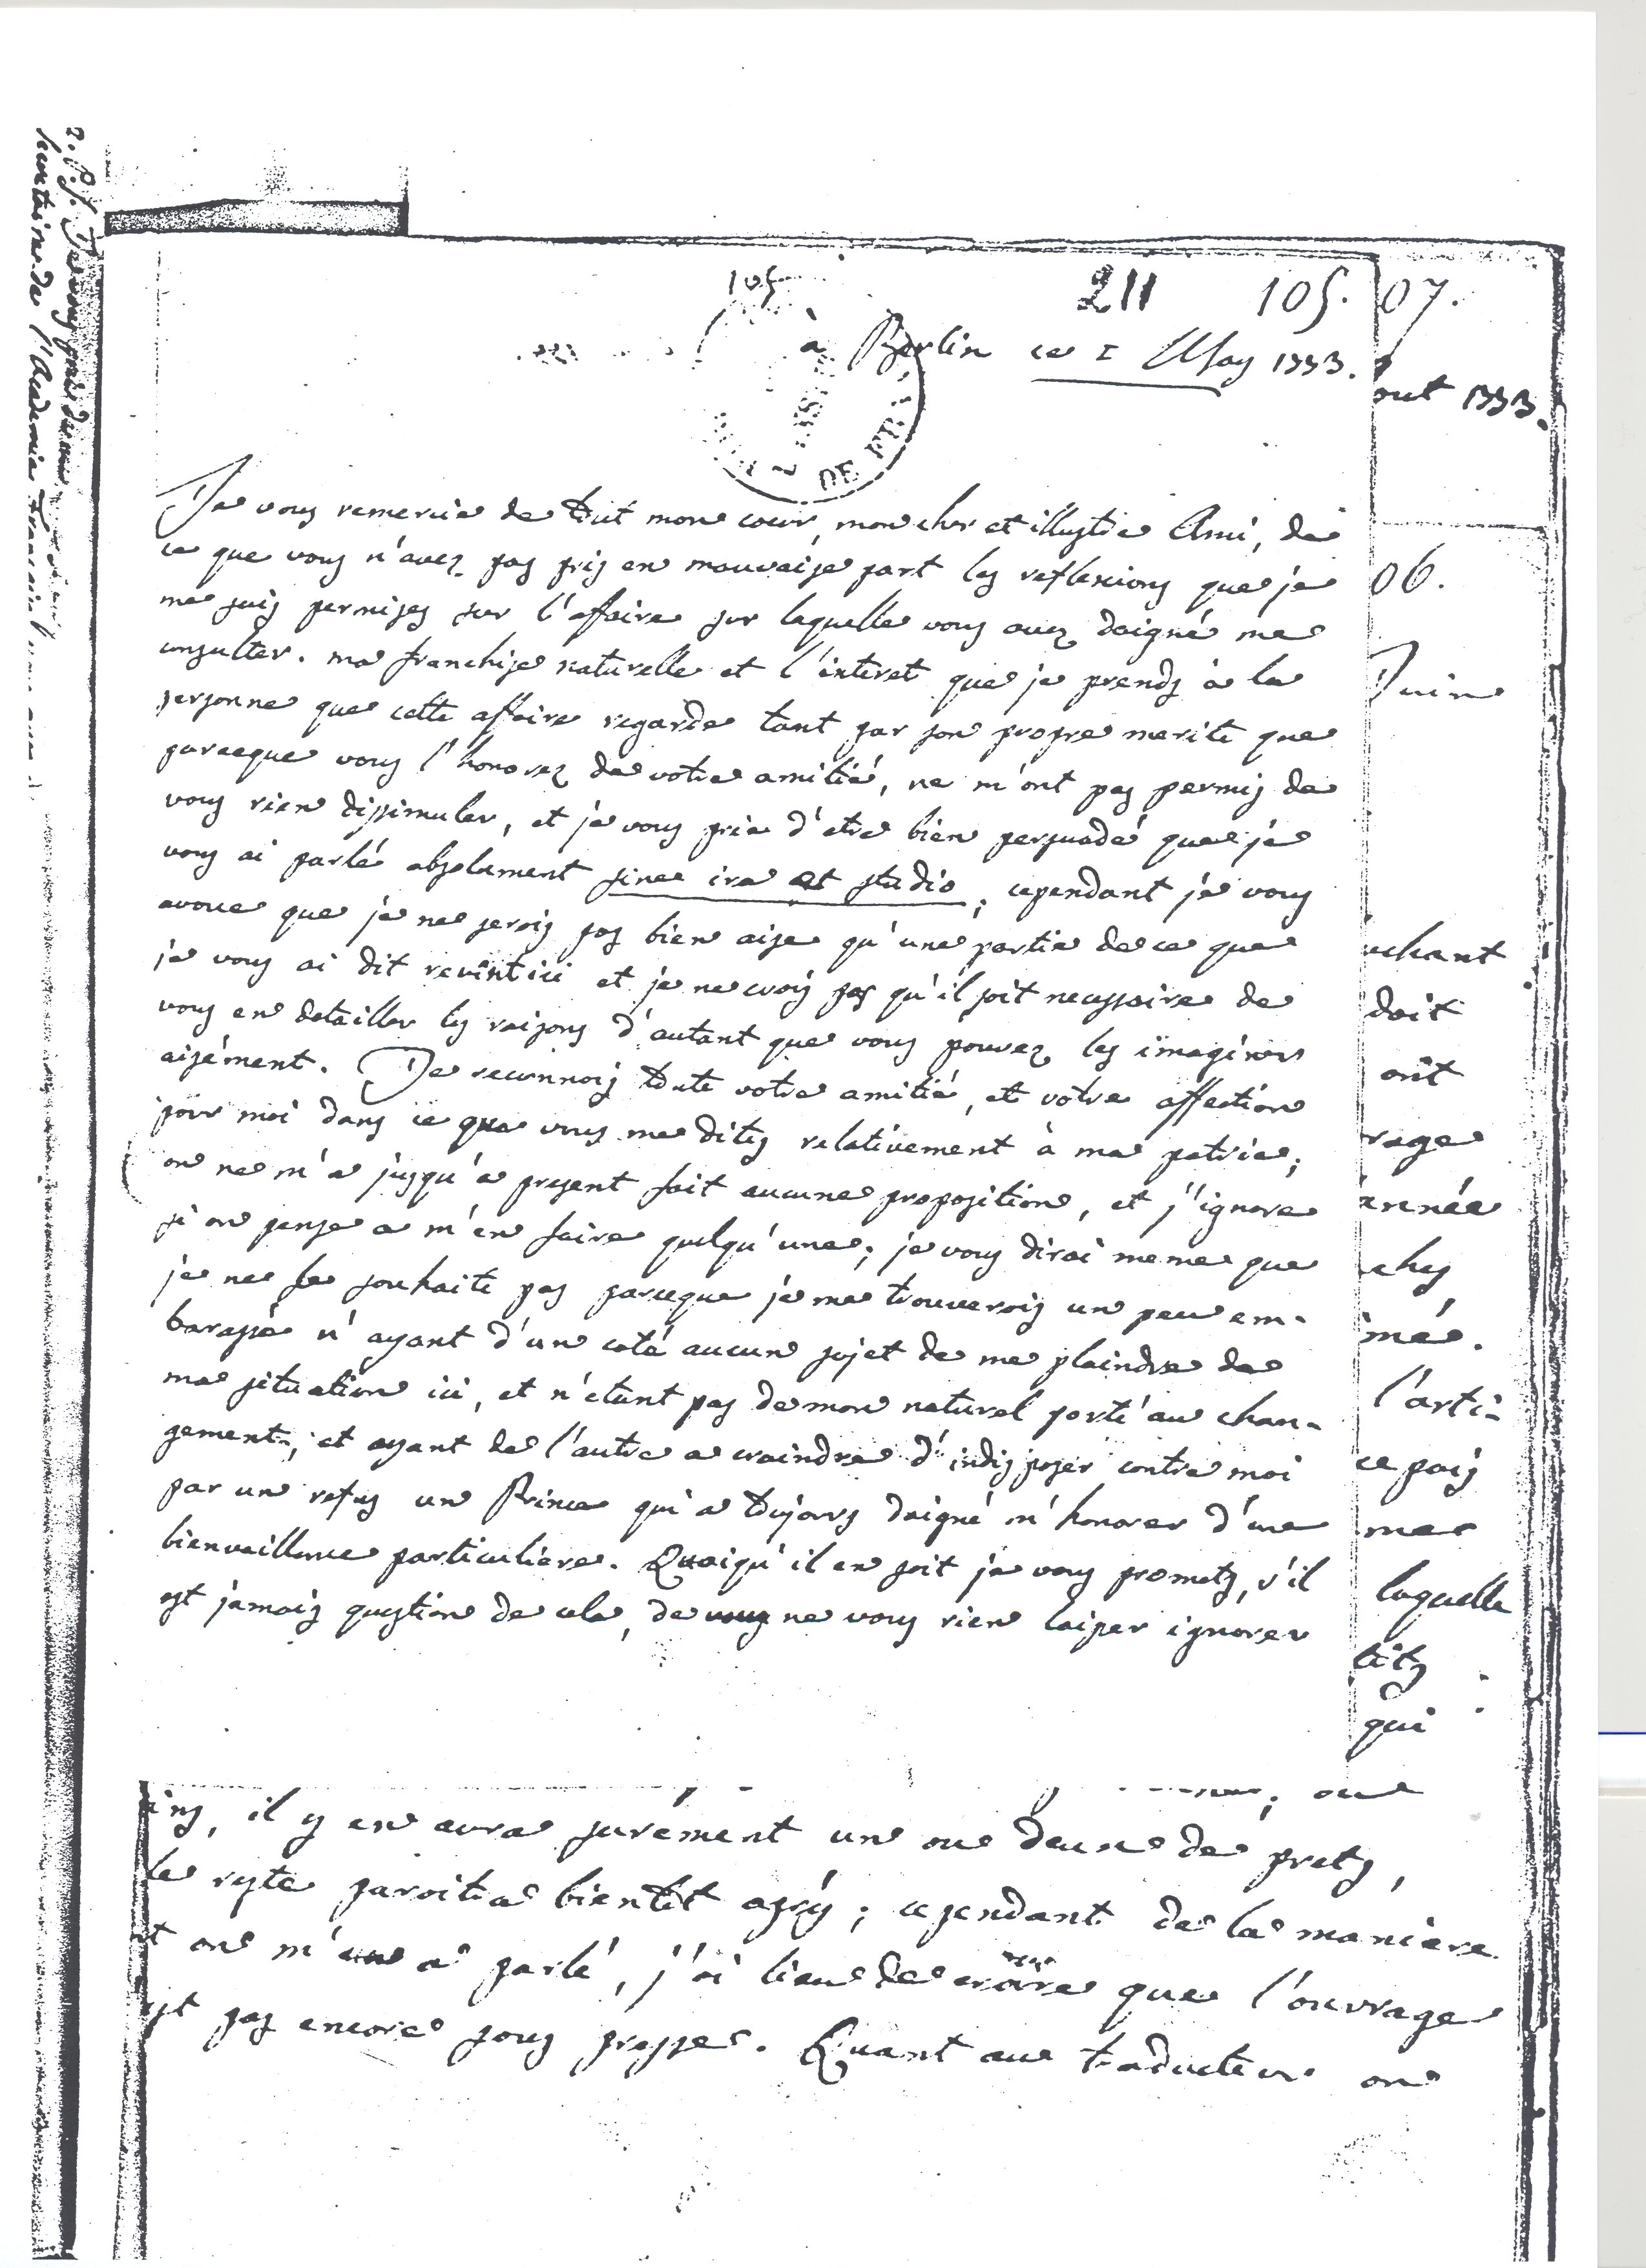 105
211 105. 07.
à Berlin ce 1 May 1773.
out 1773.
Je vous remercie de tout mon coeur, mon cher et illustre Ami, de
ce que vous n'avez pas pris en mauvaise part les reflexions que je
me suis permises sur l'affaire sur laquelle vous avez daigné me
consulter. ma franchise naturelle et l'interet que je prends à la
personne que cette affaire regarde tant par son propre merite que
parceque vous l'honorez de votre amitié, ne m'ont pas permis de
vous rien dissimuler, et je vous prie d'etre bien persuadé que je
vous ai parlé absolument sine ira et studio; cependant je vous
avoue que je ne serois pas bien aise qu'une partie de ce que
je vous ai dit revînt ici et je ne crois pas qu'il soit necessaire de
vous en detailler les raisons d'autant que vous pouvez les imaginer
aisément. Je reconnois toute votre amitié, et votre affection
pour moi dans ce que vous me dites relativement à ma patrie;
on ne m'a jusqu'a present fait aucune proposition, et j'ignore
si on pense a m'en faire quelqu'une; je vous dirai meme que
je ne le souhaite pas parceque je me trouverois un peu em-
barassé n'ayant d'un coté aucun sujet de me plaindre de
ma situation ici, et n'etant pas de mon naturel porté au chan-
gement, et ayant de l'autre a craindre d'indisposer contre moi
par un refus un Prince qui a toujours daigné m'honorer d'une
bienveillance particuliere. Quoiqu'il en soit je vous promets, s'il
est jamais question de cela, de ne vous rien laisser ignorer
06.
Juin
chant
doit
ont
rage
année
ches
mé.
l'arti-
ce pais
me
laquelle
tits
qui
ou
ins, il y en aura surément un ou deux de prets,
le reste paroitra bientôt après; cependant de la maniere
t on m'en a parlé, j'ai lieu de croire que l'ouvrage
est pas encore sous presse. Quant au traducteur on
2. P.S.
secretaire de l'Academie Francaise
DE FR